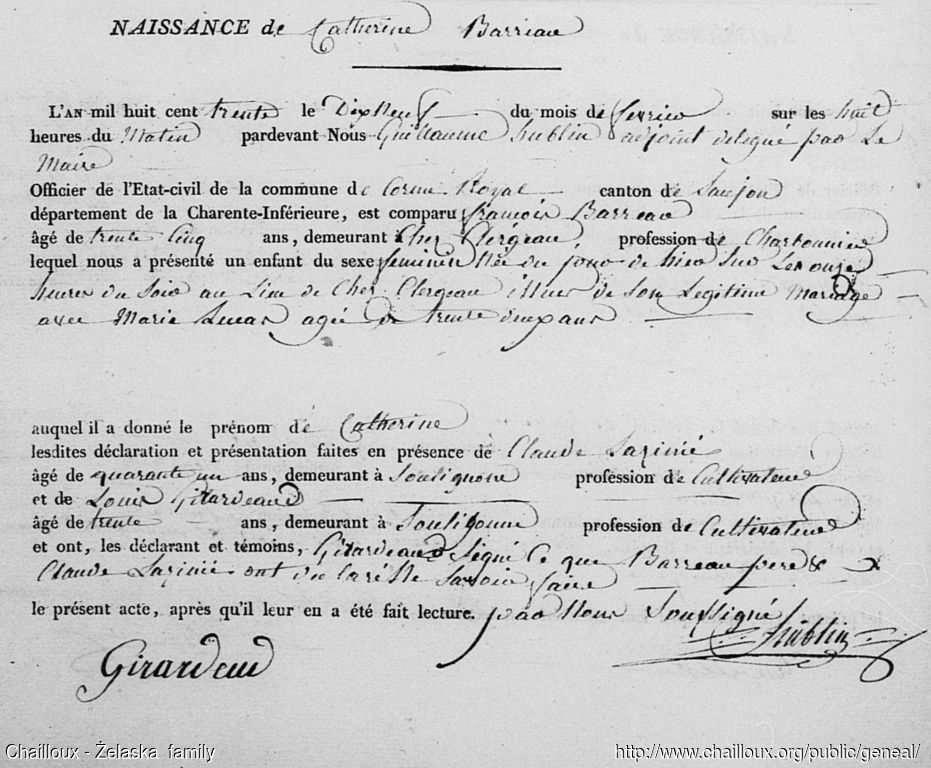 NAISSANCE de Catherine Barriau
L'AN mil huit cent trente le Dixneuf du mois de fevrier sur les huit
heures du Matin pardevant Nous Guillaume hublin adjoint delegué par Le
Maire
Officier de l'Etat-civil de la commune de Corme Royal canton de Saujon
département de la Charente-Inférieure, est comparu françois Barreau
âgé de trente Cinq ans, demeurant à Cher Clergeau profession de Charbonnier
lequel nous a présenté un enfant du sexe feminin Née du jour de hier sur Les onze
heures du Soir au Lieu de Cher Clergeau issue de Son Legitime Mariage
avec Marie Lucas agée de trente deux ans
auquel il a donné le prénom de Catherine
lesdites déclaration et présentation faites en présence de Claude
âgé de quarante un ans, demeurant à Soulignone profession de Cultivateur
et de Louis Girardeaud
âgé de trente ans, demeurant à Souligonne profession de Cultivateur
et ont, les déclarant et témoins, Girardeaud Signé Ce que Barreau pere &
Claude ont declaré Ne Savoir faire
le présent acte, après qu'il leur en a été fait lecture. par Nous Soussigné
hublin
Girardeaud
Chailloux - Želaska family http://www.chailloux.org/public/geneal/